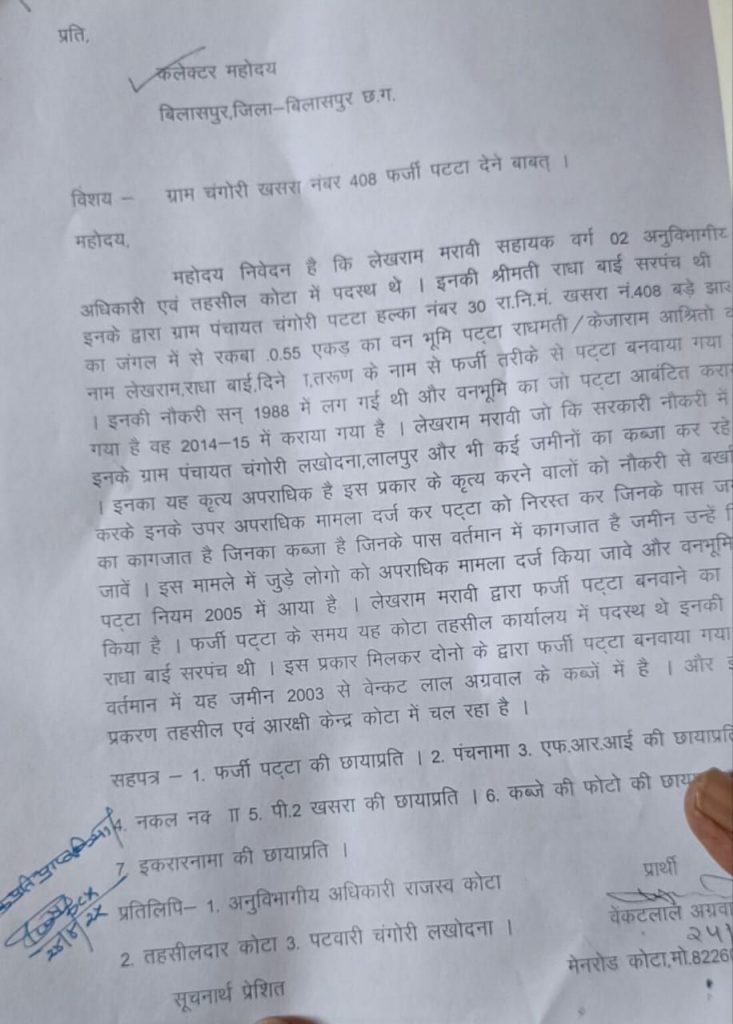 प्रति,
कलेक्टर महोदय
बिलासपुर,जिला–बिलासपुर छ.ग.
विशय – ग्राम चंगोरी खसरा नंबर 408 फर्जी पटटा देने बाबत् ।
महोदय,
महोदय निवेदन है कि लेखराम मरावी सहायक वर्ग 02 अनुविभागीय
अधिकारी एवं तहसील कोटा में पदस्थ थे । इनकी श्रीमती राधा बाई सरपंच थी
इनके द्वारा ग्राम पंचायत चंगोरी पटटा हल्का नंबर 30 रा.नि.मं. खसरा नं.408 बड़े झाड़
का जंगल में से रकबा .0.55 एकड़ का वन भूमि पट्टा राधमती/केजाराम आश्रितो
नाम लेखराम,राधा बाई,दिने ा,तरूण के नाम से फर्जी तरीके से पट्टा बनवाया गया
। इनकी नौकरी सन् 1988 में लग गई थी और वनभूमि का जो पट्टा आबंटित
गया है वह 2014–15 में कराया गया है । लेखराम मरावी जो कि सरकारी नौकरी में
इनके ग्राम पंचायत चंगोरी लखोदना,लालपुर और भी कई जमीनों का कब्जा कर रहे
। इनका यह कृत्य अपराधिक है इस प्रकार के कृत्य करने वालों को नौकरी से
करके इनके उपर अपराधिक मामला दर्ज कर पट्टा को निरस्त कर जिनके पास
का कागजात है जिनका कब्जा है जिनके पास वर्तमान में कागजात है जमीन उन्हें
जावें । इस मामले में जुड़े लोगो को अपराधिक मामला दर्ज किया जावे और वनभूमि
पट्टा नियम 2005 में आया है । लेखराम मरावी द्वारा फर्जी पट्टा बनवाने का
किया है । फर्जी पट्टा के समय यह कोटा तहसील कार्यालय में पदस्थ थे इनकी
राधा बाई सरपंच थी । इस प्रकार मिलकर दोनो के द्वारा फर्जी पट्टा बनवाया गया
वर्तमान में यह जमीन 2003 से वेन्कट लाल अग्रवाल के कब्जें में है । और
प्रकरण तहसील एवं आरक्षी केन्द्र कोटा में चल रहा है ।
सहपत्र – 1. फर्जी पट्टा की छायाप्रति । 2. पंचनामा 3. एफ.आर.आई की छायाप्रति
4. नकल नक् ाा 5. पी.2 खसरा की छायाप्रति । 6. कब्जे की फोटो की
7. इकरारनामा की छायाप्रति ।
प्रार्थी
प्रतिलिपि– 1. अनुविभागीय अधिकारी राजस्व कोटा
वेंकटलाल
2. तहसीलदार कोटा 3. पटवारी चंगोरी लखोदना ।
मेनरोड कोटा,मो.8226
सूचनार्थ प्रेशित